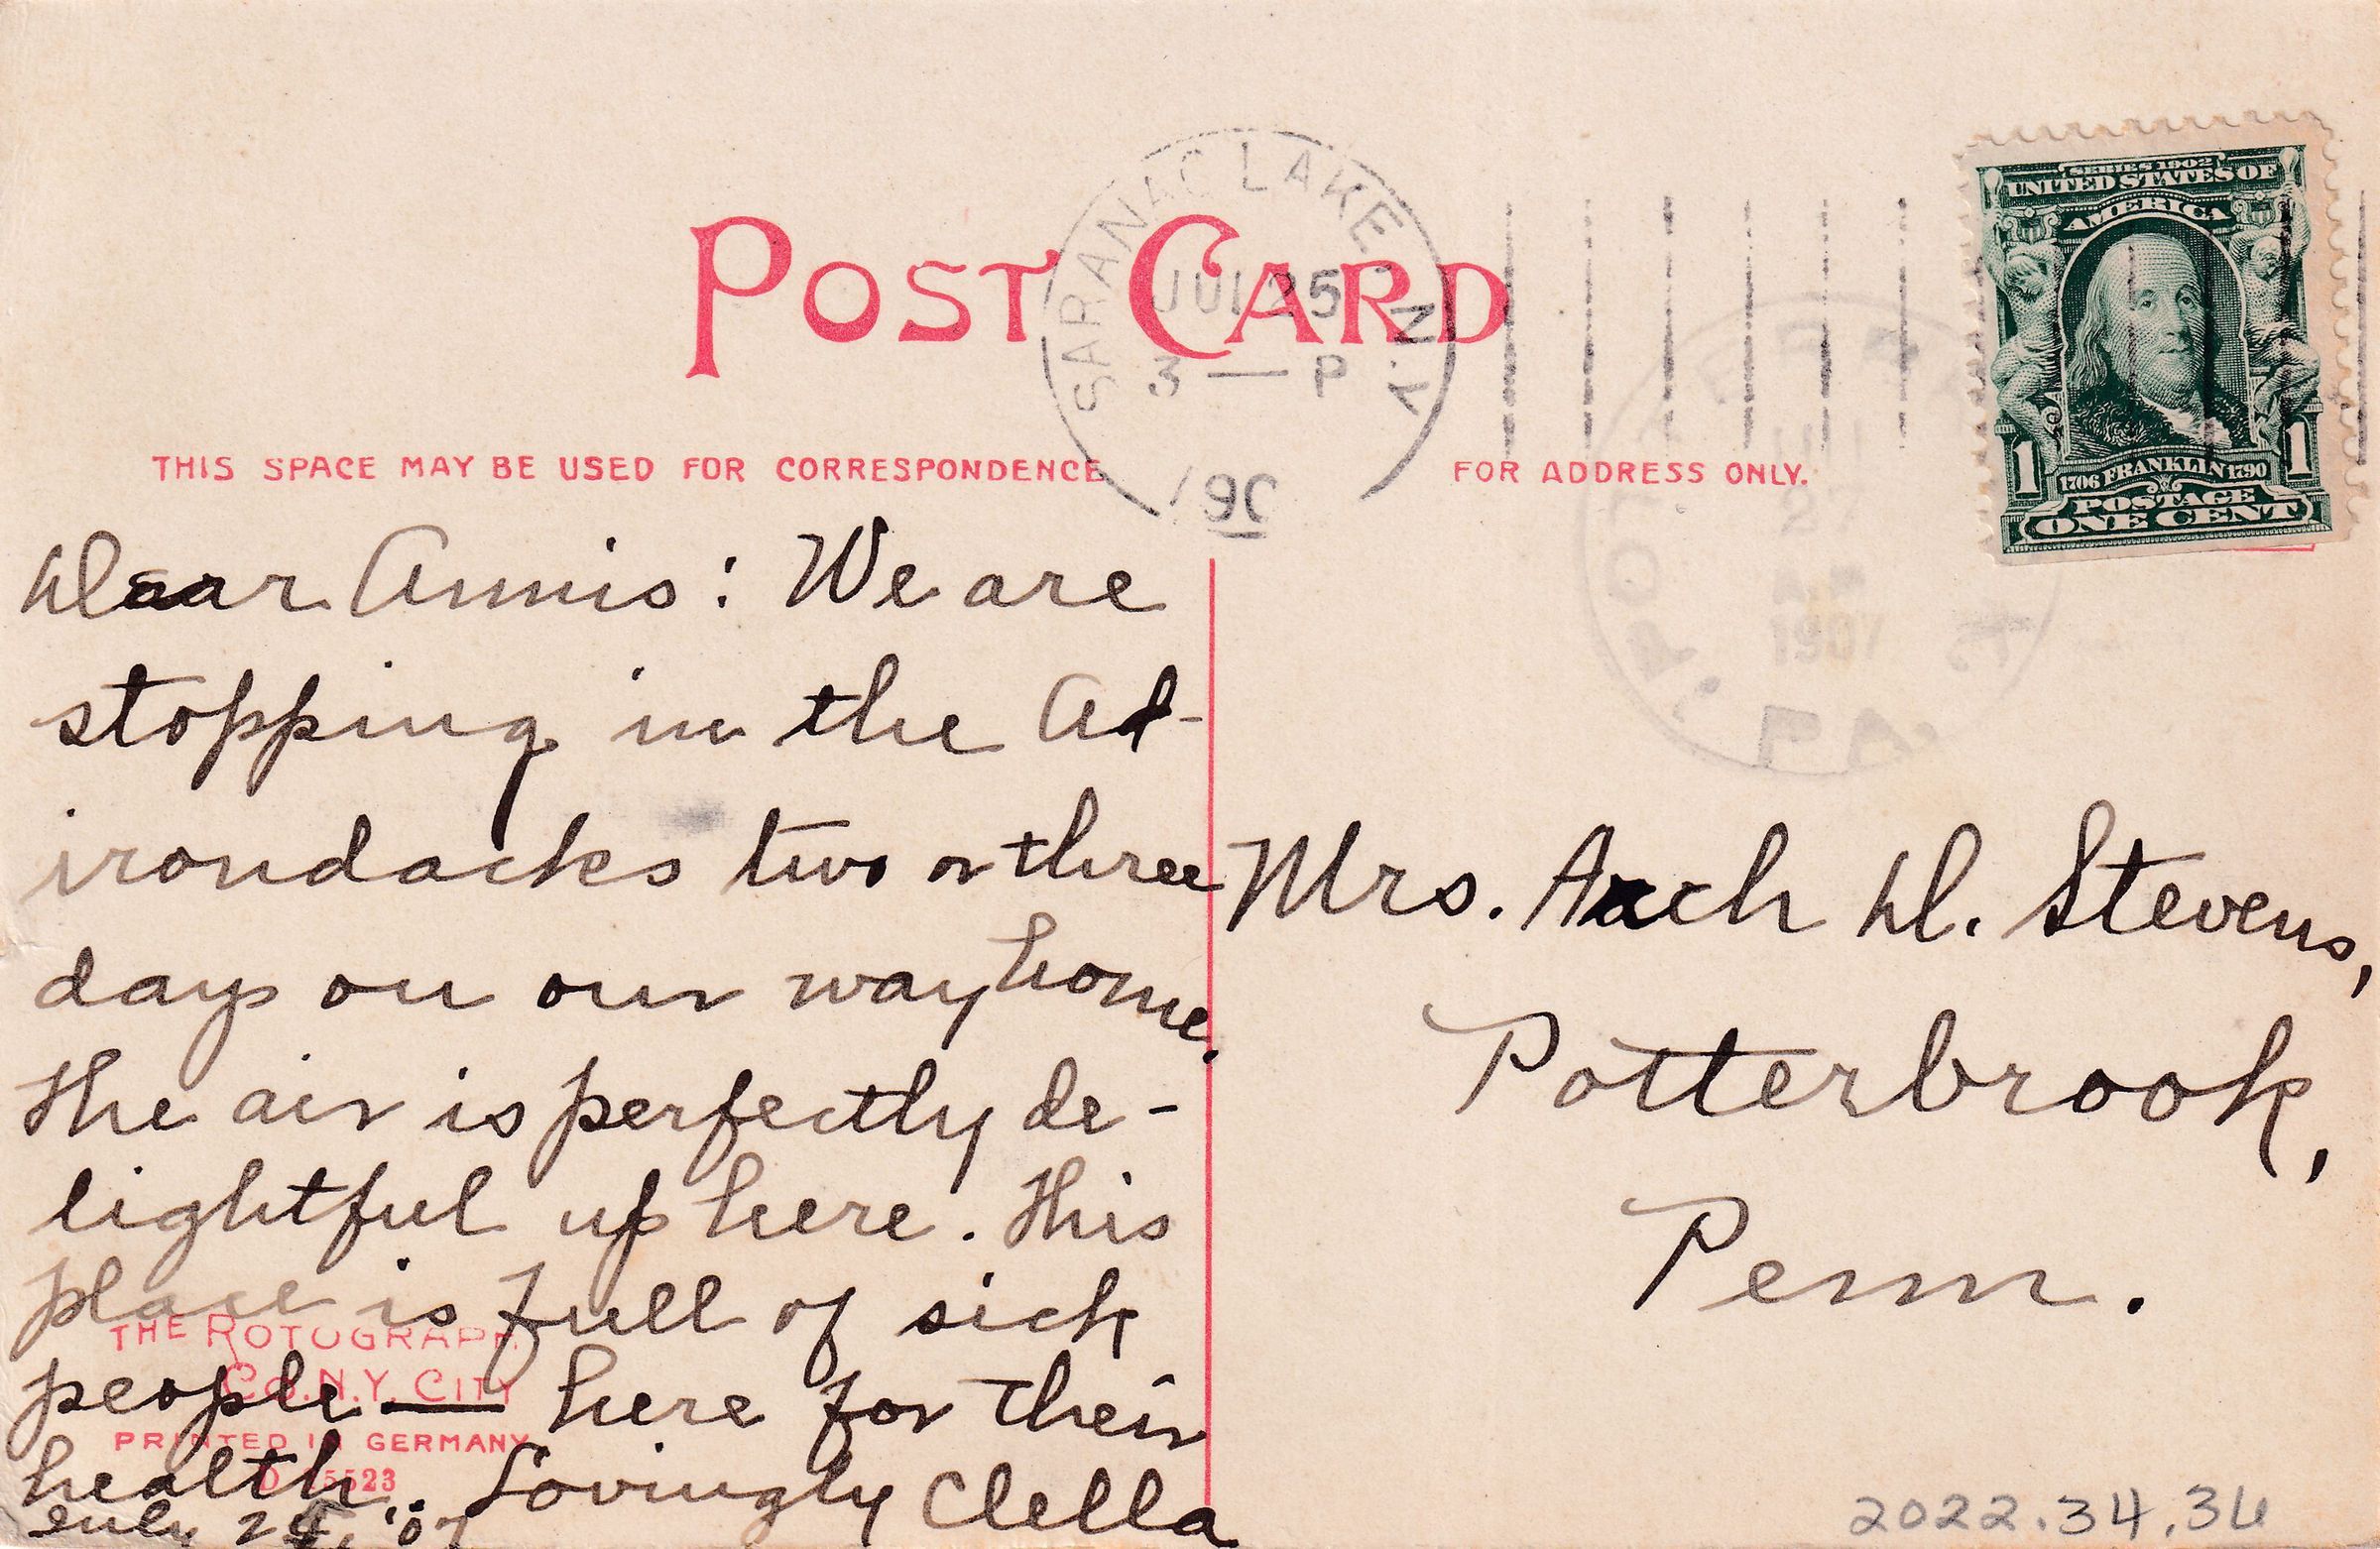 POST CARD
SARANAC LAKE, N.Y.
JUL 25
3 — P
190
THIS SPACE MAY BE USED FOR CORRESPONDENCE
FOR ADDRESS ONLY.
SERIES 1902
UNITED STATES OF
AMERICA
1706 FRANKLIN 1790
1 1
POSTAGE
ONE CENT
1907
Dear Annis: We are
stopping in the Ad-
irondacks two or three
days on our way home.
The air is perfectly de-
lightful up here. This
place is full of sick
people — here for their
health. Lovingly Clella
July 24, '07
Mrs. Arch D. Stevens,
Potterbrook,
Penn.
THE ROTOGRAPH
CO. N.Y. CITY
PRINTED IN GERMANY
2022.34.36